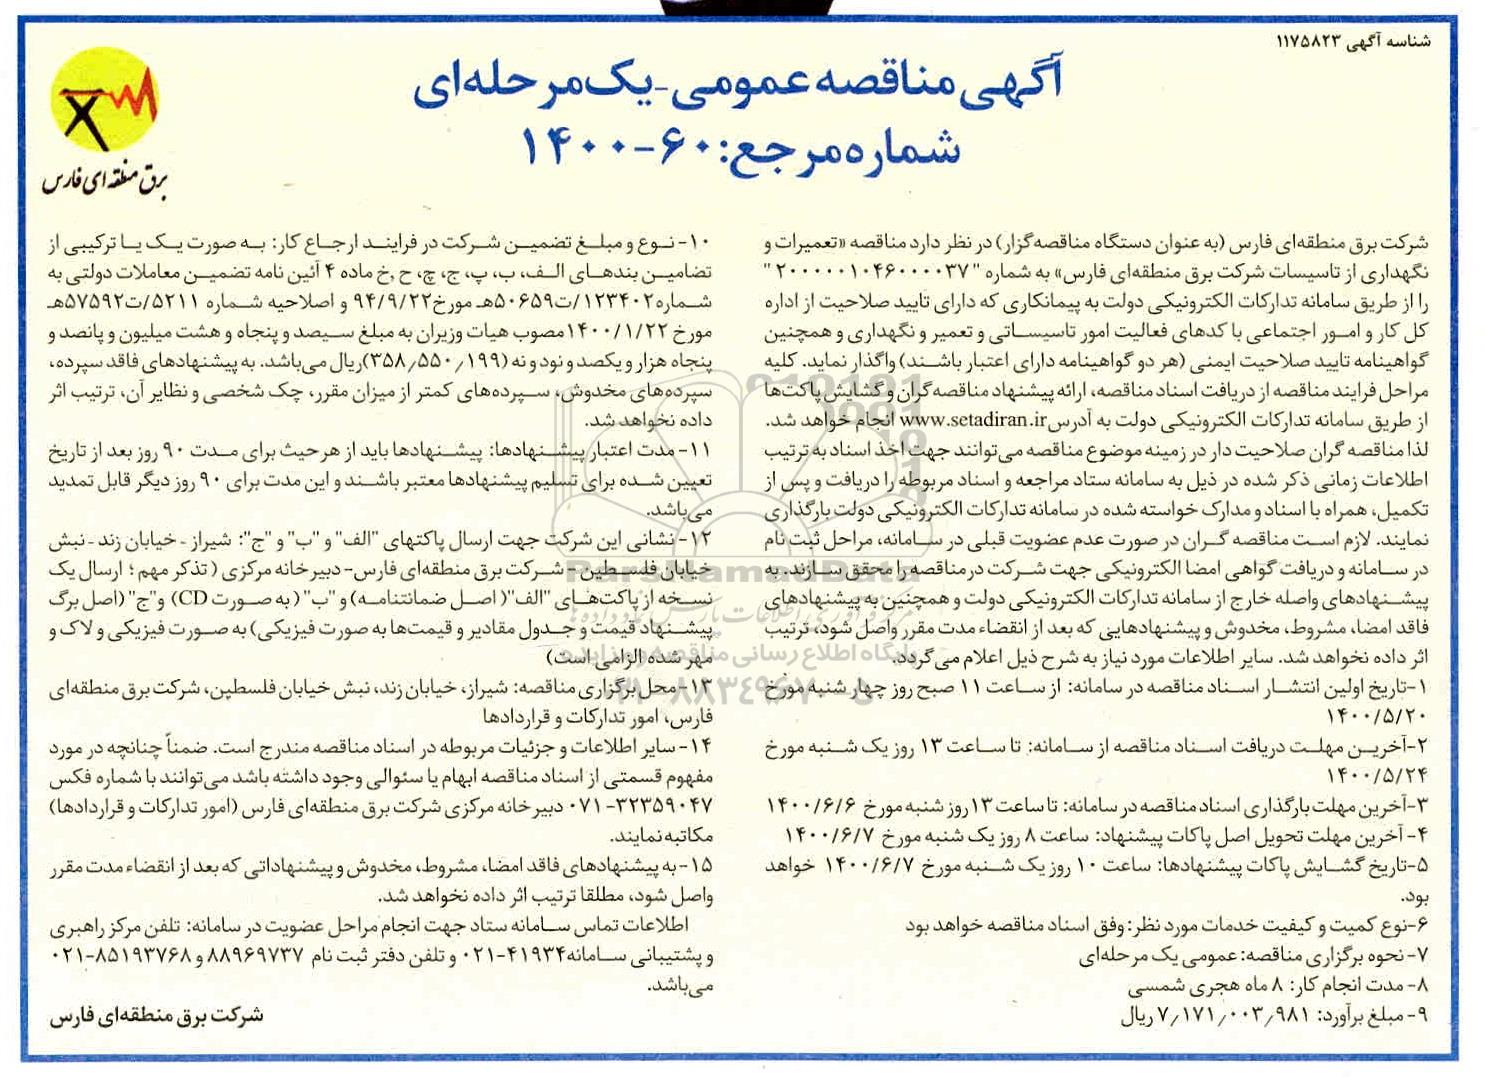 شناسه آگهی ۱۱۷۵۸۲۳
آگهی مناقصه عمومی-یک مرحله‌ای
شماره مرجع: ۶۰-۱۴۰۰
برق منطقه ای فارس
شرکت برق منطقه‌ای فارس (به عنوان دستگاه مناقصه‌گزار) در نظر دارد مناقصه «تعمیرات و
نگهداری از تاسیسات شرکت برق منطقه‌ای فارس» به شماره "۲۰۰۰۰۰۱۰۴۶۰۰۰۰۳۷"
را از طریق سامانه تدارکات الکترونیکی دولت به پیمانکاری که دارای تایید صلاحیت از اداره
کل کار و امور اجتماعی با کدهای فعالیت امور تاسیساتی و تعمیر و نگهداری و همچنین
گواهینامه تایید صلاحیت ایمنی (هر دو گواهینامه دارای اعتبار باشند) واگذار نماید. کلیه
مراحل فرایند مناقصه از دریافت اسناد مناقصه، ارائه پیشنهاد مناقصه‌گران و گشایش پاکت‌ها
از طریق سامانه تدارکات الکترونیکی دولت به آدرس www.setadiran.ir انجام خواهد شد.
لذا مناقصه گران صلاحیت دار در زمینه موضوع مناقصه می‌توانند جهت اخذ اسناد به ترتیب
اطلاعات زمانی ذکر شده در ذیل به سامانه ستاد مراجعه و اسناد مربوطه را دریافت و پس از
تکمیل، همراه با اسناد و مدارک خواسته شده در سامانه تدارکات الکترونیکی دولت بارگذاری
نمایند. لازم است مناقصه گران در صورت عدم عضویت قبلی در سامانه، مراحل ثبت نام
در سامانه و دریافت گواهی امضا الکترونیکی جهت شرکت در مناقصه را محقق سازند. به
پیشنهادهای واصله خارج از سامانه تدارکات الکترونیکی دولت و همچنین به پیشنهادهای
فاقد امضا، مشروط، مخدوش و پیشنهادهایی که بعد از انقضاء مدت مقرر واصل شود، ترتیب
اثر داده نخواهد شد. سایر اطلاعات مورد نیاز به شرح ذیل اعلام می‌گردد.
۱-تاریخ اولین انتشار اسناد مناقصه در سامانه: از ساعت ۱۱ صبح روز چهار شنبه مورخ
۱۴۰۰/۵/۲۰
۲-آخرین مهلت دریافت اسناد مناقصه از سامانه: تا ساعت ۱۳ روز یک شنبه مورخ
۱۴۰۰/۵/۲۴
۳-آخرین مهلت بارگذاری اسناد مناقصه در سامانه: تا ساعت ۱۳ روز شنبه مورخ ۱۴۰۰/۶/۶
۴- آخرین مهلت تحویل اصل پاکات پیشنهاد: ساعت ۸ روز یک شنبه مورخ ۱۴۰۰/۶/۷
۵-تاریخ گشایش پاکات پیشنهادها: ساعت ۱۰ روز یک شنبه مورخ ۱۴۰۰/۶/۷ خواهد
بود.
۶-نوع کمیت و کیفیت خدمات مورد نظر: وفق اسناد مناقصه خواهد بود
۷- نحوه برگزاری مناقصه: عمومی یک مرحله‌ای
۸- مدت انجام کار: ۸ ماه هجری شمسی
۹- مبلغ برآورد: ۷٫۱۷۱٫۰۰۳٫۹۸۱ ریال
۱۰- نوع و مبلغ تضمین شرکت در فرایند ارجاع کار: به صورت یک یا ترکیبی از
تضامین بندهای الف، ب، پ، ج، چ، ح ,خ ماده ۴ آئین نامه تضمین معاملات دولتی به
شماره۱۲۳۴۰۲/ت۵۰۶۵۹هـ مورخ۹۴/۹/۲۲ و اصلاحیه شماره ۵۲۱۱/ت۵۷۵۹۲هـ
مورخ ۱۴۰۰/۱/۲۲مصوب هیات وزیران به مبلغ سیصد و پنجاه و هشت میلیون و پانصد و
پنجاه هزار و یکصد و نود و نه (۳۵۸٫۵۵۰٫۱۹۹)ریال می‌باشد. به پیشنهادهای فاقد سپرده،
سپرده‌های مخدوش، سپرده‌های کمتر از میزان مقرر، چک شخصی و نظایر آن، ترتیب اثر
داده نخواهد شد.
۱۱- مدت اعتبار پیشنهادها: پیشنهادها باید از هر حیث برای مدت ۹۰ روز بعد از تاریخ
تعیین شده برای تسلیم پیشنهادها معتبر باشند و این مدت برای ۹۰ روز دیگر قابل تمدید
می‌باشد.
۱۲- نشانی این شرکت جهت ارسال پاکتهای "الف" و "ب" و "ج": شیراز - خیابان زند - نبش
خیابان فلسطین - شرکت برق منطقه‌ای فارس- دبیرخانه مرکزی ( تذکر مهم ؛ ارسال یک
نسخه از پاکت‌های "الف"( اصل ضمانتنامه) و "ب" ( به صورت CD) و"ج" (اصل برگ
پیشنهاد قیمت و جدول مقادیر و قیمت‌ها به صورت فیزیکی) به صورت فیزیکی و لاک و
مهر شده الزامی است)
۱۳- محل برگزاری مناقصه: شیراز، خیابان زند، نبش خیابان فلسطین، شرکت برق منطقه‌ای
فارس، امور تدارکات و قراردادها
۱۴- سایر اطلاعات و جزئیات مربوطه در اسناد مناقصه مندرج است. ضمناً چنانچه در مورد
مفهوم قسمتی از اسناد مناقصه ابهام یا سئوالی وجود داشته باشد می‌توانند با شماره فکس
۰۷۱-۳۲۳۵۹۰۴۷ دبیرخانه مرکزی شرکت برق منطقه‌ای فارس (امور تدارکات و قراردادها)
مکاتبه نمایند.
۱۵- به پیشنهادهای فاقد امضا، مشروط، مخدوش و پیشنهاداتی که بعد از انقضاء مدت مقرر
واصل شود، مطلقا ترتیب اثر داده نخواهد شد.
اطلاعات تماس سامانه ستاد جهت انجام مراحل عضویت در سامانه: تلفن مرکز راهبری
و پشتیبانی سامانه۴۱۹۳۴-۰۲۱ و تلفن دفتر ثبت نام ۸۸۹۶۹۷۳۷ و ۸۵۱۹۳۷۶۸-۰۲۱
می‌باشد.
شرکت برق منطقه‌ای فارس
ParsNamadData
پایگاه اطلاع رسانی مناقصه و مزایده
۰۲۱-۸۸۳۴۹۶۷۰-۵